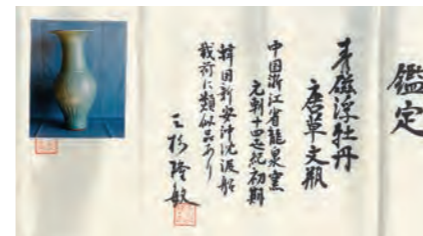 鑑定
青磁浮牡丹
唐草文瓶
中国浙江省龍泉窯
元朝十四世紀初期
韓国新安沖沈没船
載荷に類似品あり
三杉隆敏